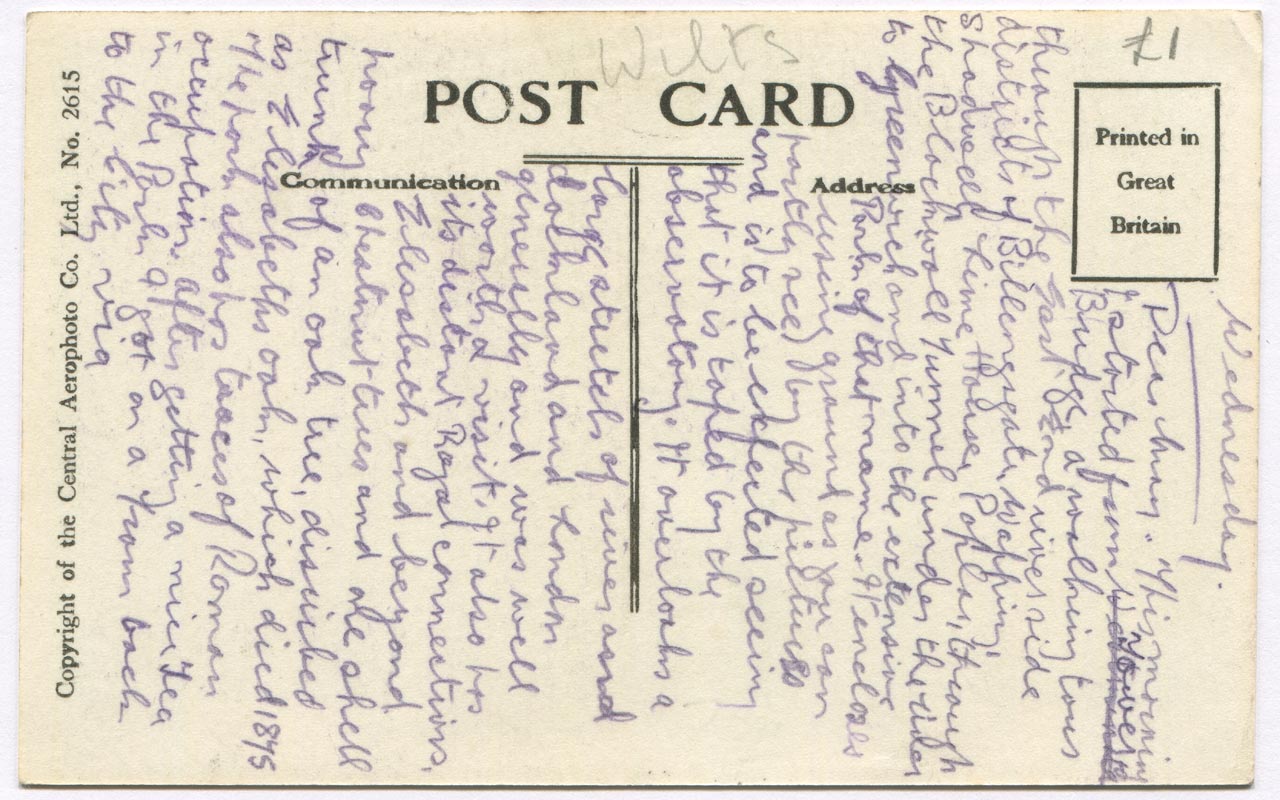 Wilts
£1
POST CARD
Communication
Address
Printed in
Great
Britain
Copyright of the Central Aerophoto Co. Ltd., No. 2615
Wednesday.
Dear hmy. This morning
I started from Tower
Bridge, a walking tour
through the East End river side
districts of Billingsgate, Wapping,
Shadwell, Lime House, Poplar, through
the Blackwall Tunnel under the river
to Greenwich and into the extensive
Park of that name. It encloses
rising ground as you can
partly see) by the picture
and is to be expected seeing
that it is topped by the
observatory. It overlooks a
large stretch of river and
dockland and London
generally and was well
worth a visit. It also has
its distant Royal connections,
Elizabeth and beyond
having chestnut trees and the shell
trunk of an oak tree, discribed
as Elizabeths oak, which died 1875
The park also has traces of Roman
occupation. After getting a nice tea
in the Park I got on a Tram back
to the City via